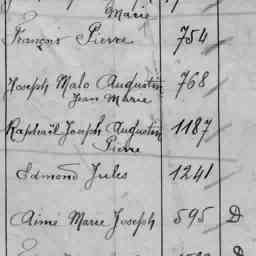 Marie
François Pierre 754
Joseph Malo Augustin 768
Jean Marie
Raphaël Joseph Augustin 1187
Pierre
Edmond Jules 1241
Aimé Marie Joseph 595 D